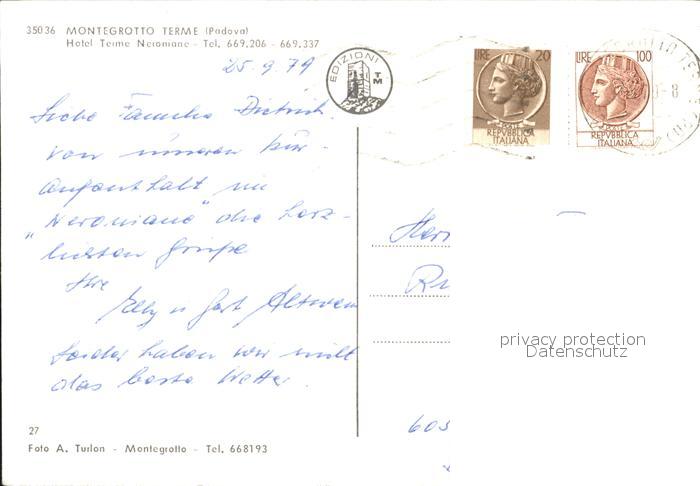 35036 MONTEGROTTO TERME (Padova)
Hotel Terme Neroniane - Tel. 669.206 - 669.337
25.9.79
EDIZIONI
TM
LIRE 20
REPVBBLICA
ITALIANA
LIRE 100
REPVBBLICA
ITALIANA
Liebe Familie Dietrich.
von unseren Kur-
aufenthalt im
"Neroniane" die herz-
lichsten Grüße
Ihre
Elly u Gert
Leider haben wir nicht
das beste Wetter.
privacy protection
Datenschutz
605
27
Foto A. Turlon - Montegrotto - Tel. 668193